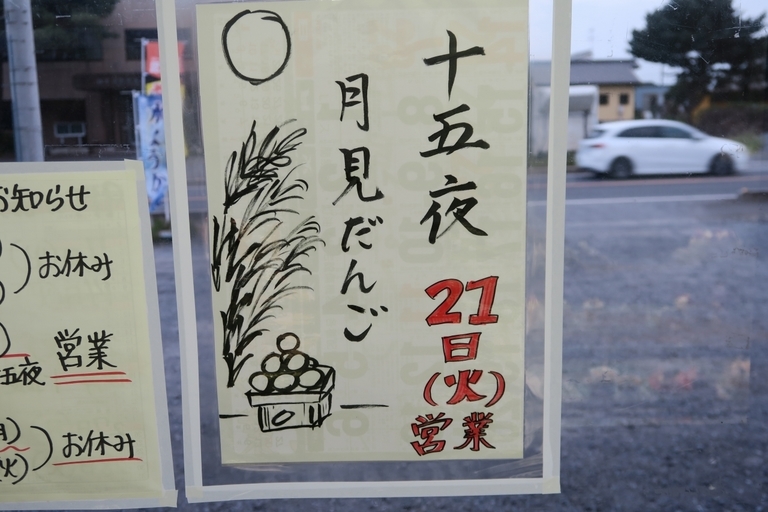 十五夜
月見だんご
21
日
(火)
営業
お知らせ
お休み
営業
五夜
お休み
火)